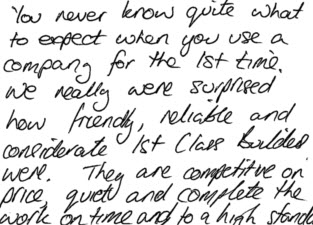 You never know quite what
to expect when you use a
company for the 1st time.
we really were surprised
how friendly, reliable and
considerate 1st Class Builders
were. They are competitive on
price, quiet and complete the
work on time and to a high standa